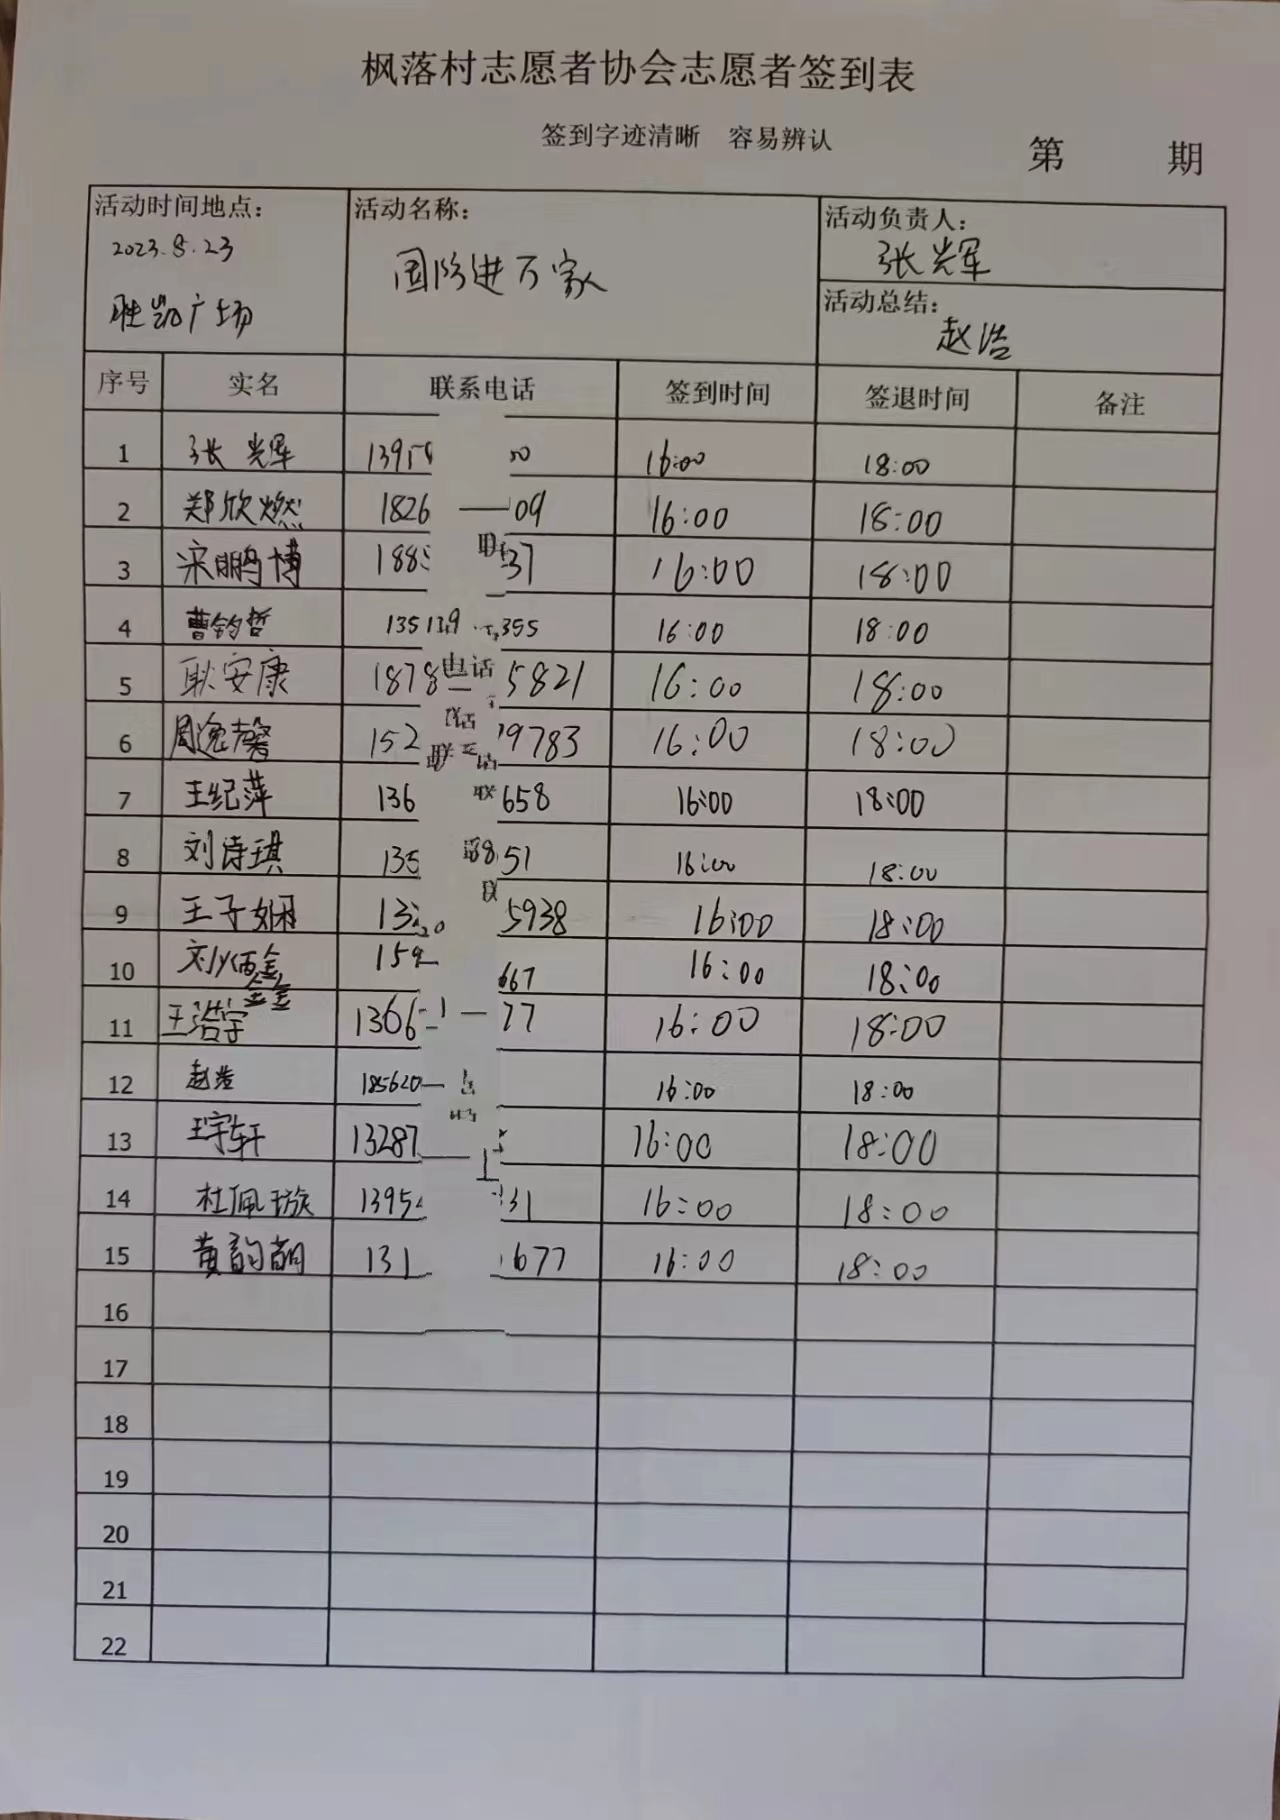 枫落村志愿者协会志愿者签到表
签到字迹清晰 容易辨认
第 期
活动时间地点: 活动名称: 活动负责人:
2023.8.23 国防进万家 张光辉
胜凯广场 活动总结: 赵浩
序号 实名 联系电话 签到时间 签退时间 备注
1 张光辉 1395 16:00 18:00
2 郑欣燃 1826 09 16:00 18:00
3 宋鹏博 188 37 16:00 18:00
4 曹钧哲 135139 355 16:00 18:00
5 耿安康 1878 电话 5821 16:00 18:00
6 周逸馨 152 9783 16:00 18:00
7 王纪萍 136 联 658 16:00 18:00
8 刘诗琪 135 51 16:00 18:00
9 王子娴 13 5938 16:00 18:00
10 刘佰鑫 159 667 16:00 18:00
11 王浩宇 1366 77 16:00 18:00
12 赵浩 185620 16:00 18:00
13 王宇轩 13287 16:00 18:00
14 杜佩璇 1395 31 16:00 18:00
15 黄韵萌 131 677 16:00 18:00
16
17
18
19
20
21
22